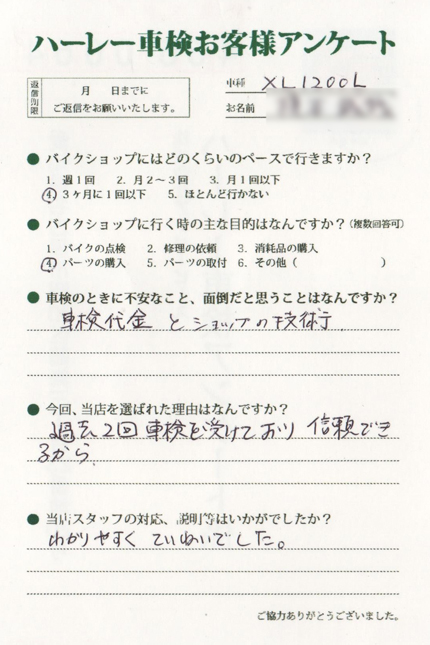 ハーレー車検お客様アンケート
返信期限
月 日までに
ご返信をお願いいたします。
車種 XL1200L
お名前
● バイクショップにはどのくらいのペースで行きますか？
1. 週1回 2. 月2～3回 3. 月1回以下
④ 3ヶ月に1回以下 5. ほとんど行かない
● バイクショップに行く時の主な目的はなんですか？(複数回答可)
1. バイクの点検 2. 修理の依頼 3. 消耗品の購入
④ パーツの購入 5. パーツの取付 6. その他（ ）
● 車検のときに不安なこと、面倒だと思うことはなんですか？
車検代金 と ショップの技術
● 今回、当店を選ばれた理由はなんですか？
過去2回車検を受けており 信頼でき
るから、
● 当店スタッフの対応、説明等はいかがでしたか？
わかりやすく ていねいでした。
ご協力ありがとうございました。